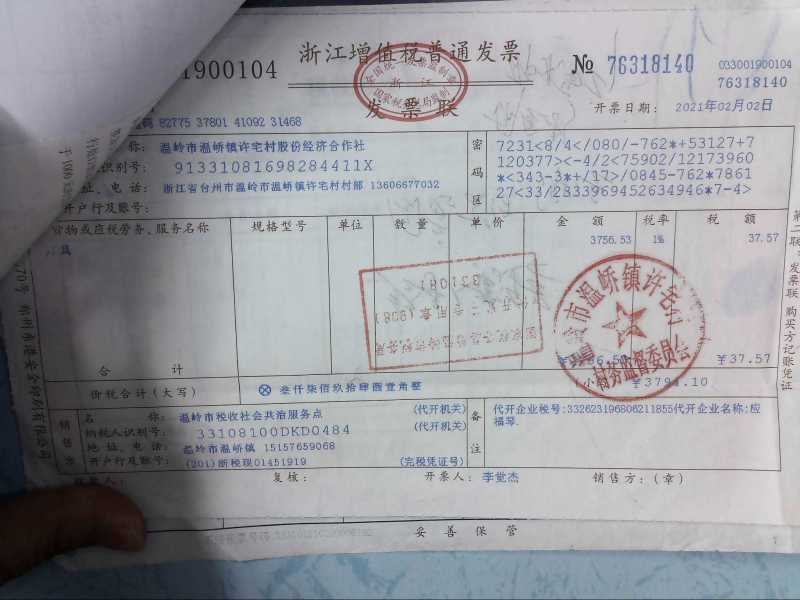 1900104
浙江增值税普通发票
发票联
全国统一发票监制章
浙江
国家税务总局监制
№ 76318140
033001900104
76318140
开票日期: 2021年02月02日
82775 37801 41092 31468
称: 温岭市温峤镇许宅村股份经济合作社
识别号: 91331081698284411X
址、电话: 浙江省台州市温岭市温峤镇许宅村村部 13606677032
开户行及账号:
密码区
7231<8/4</080/-762*+53127+7
120377><-4/2<75902/12173960
*<343-3*+/17>/0845-762*7861
27<33/2333969452634946*7-4>
货物或应税劳务、服务名称 规格型号 单位 数量 单价 金额 税率 税额
3756.53 1% 37.57
331081
合计 ¥37.57
价税合计(大写) ⊗ 叁仟柒佰玖拾肆圆壹角整 ¥3794.10
温岭市温峤镇许宅村
村务监督委员会
销售方
名称: 温岭市税收社会共治服务点 (代开机关)
纳税人识别号: 33108100DKD0484 (代开机关)
地址、电话: 温岭市温峤镇 15157659068
开户行及账号: (201)浙税现01451919 (完税凭证号)
备注
代开企业税号:332623196806211855代开企业名称:应
福琴.
收款人: 复核: 开票人: 李党杰 销售方:(章)
第二联:发票联 购买方记账凭证
妥善保管